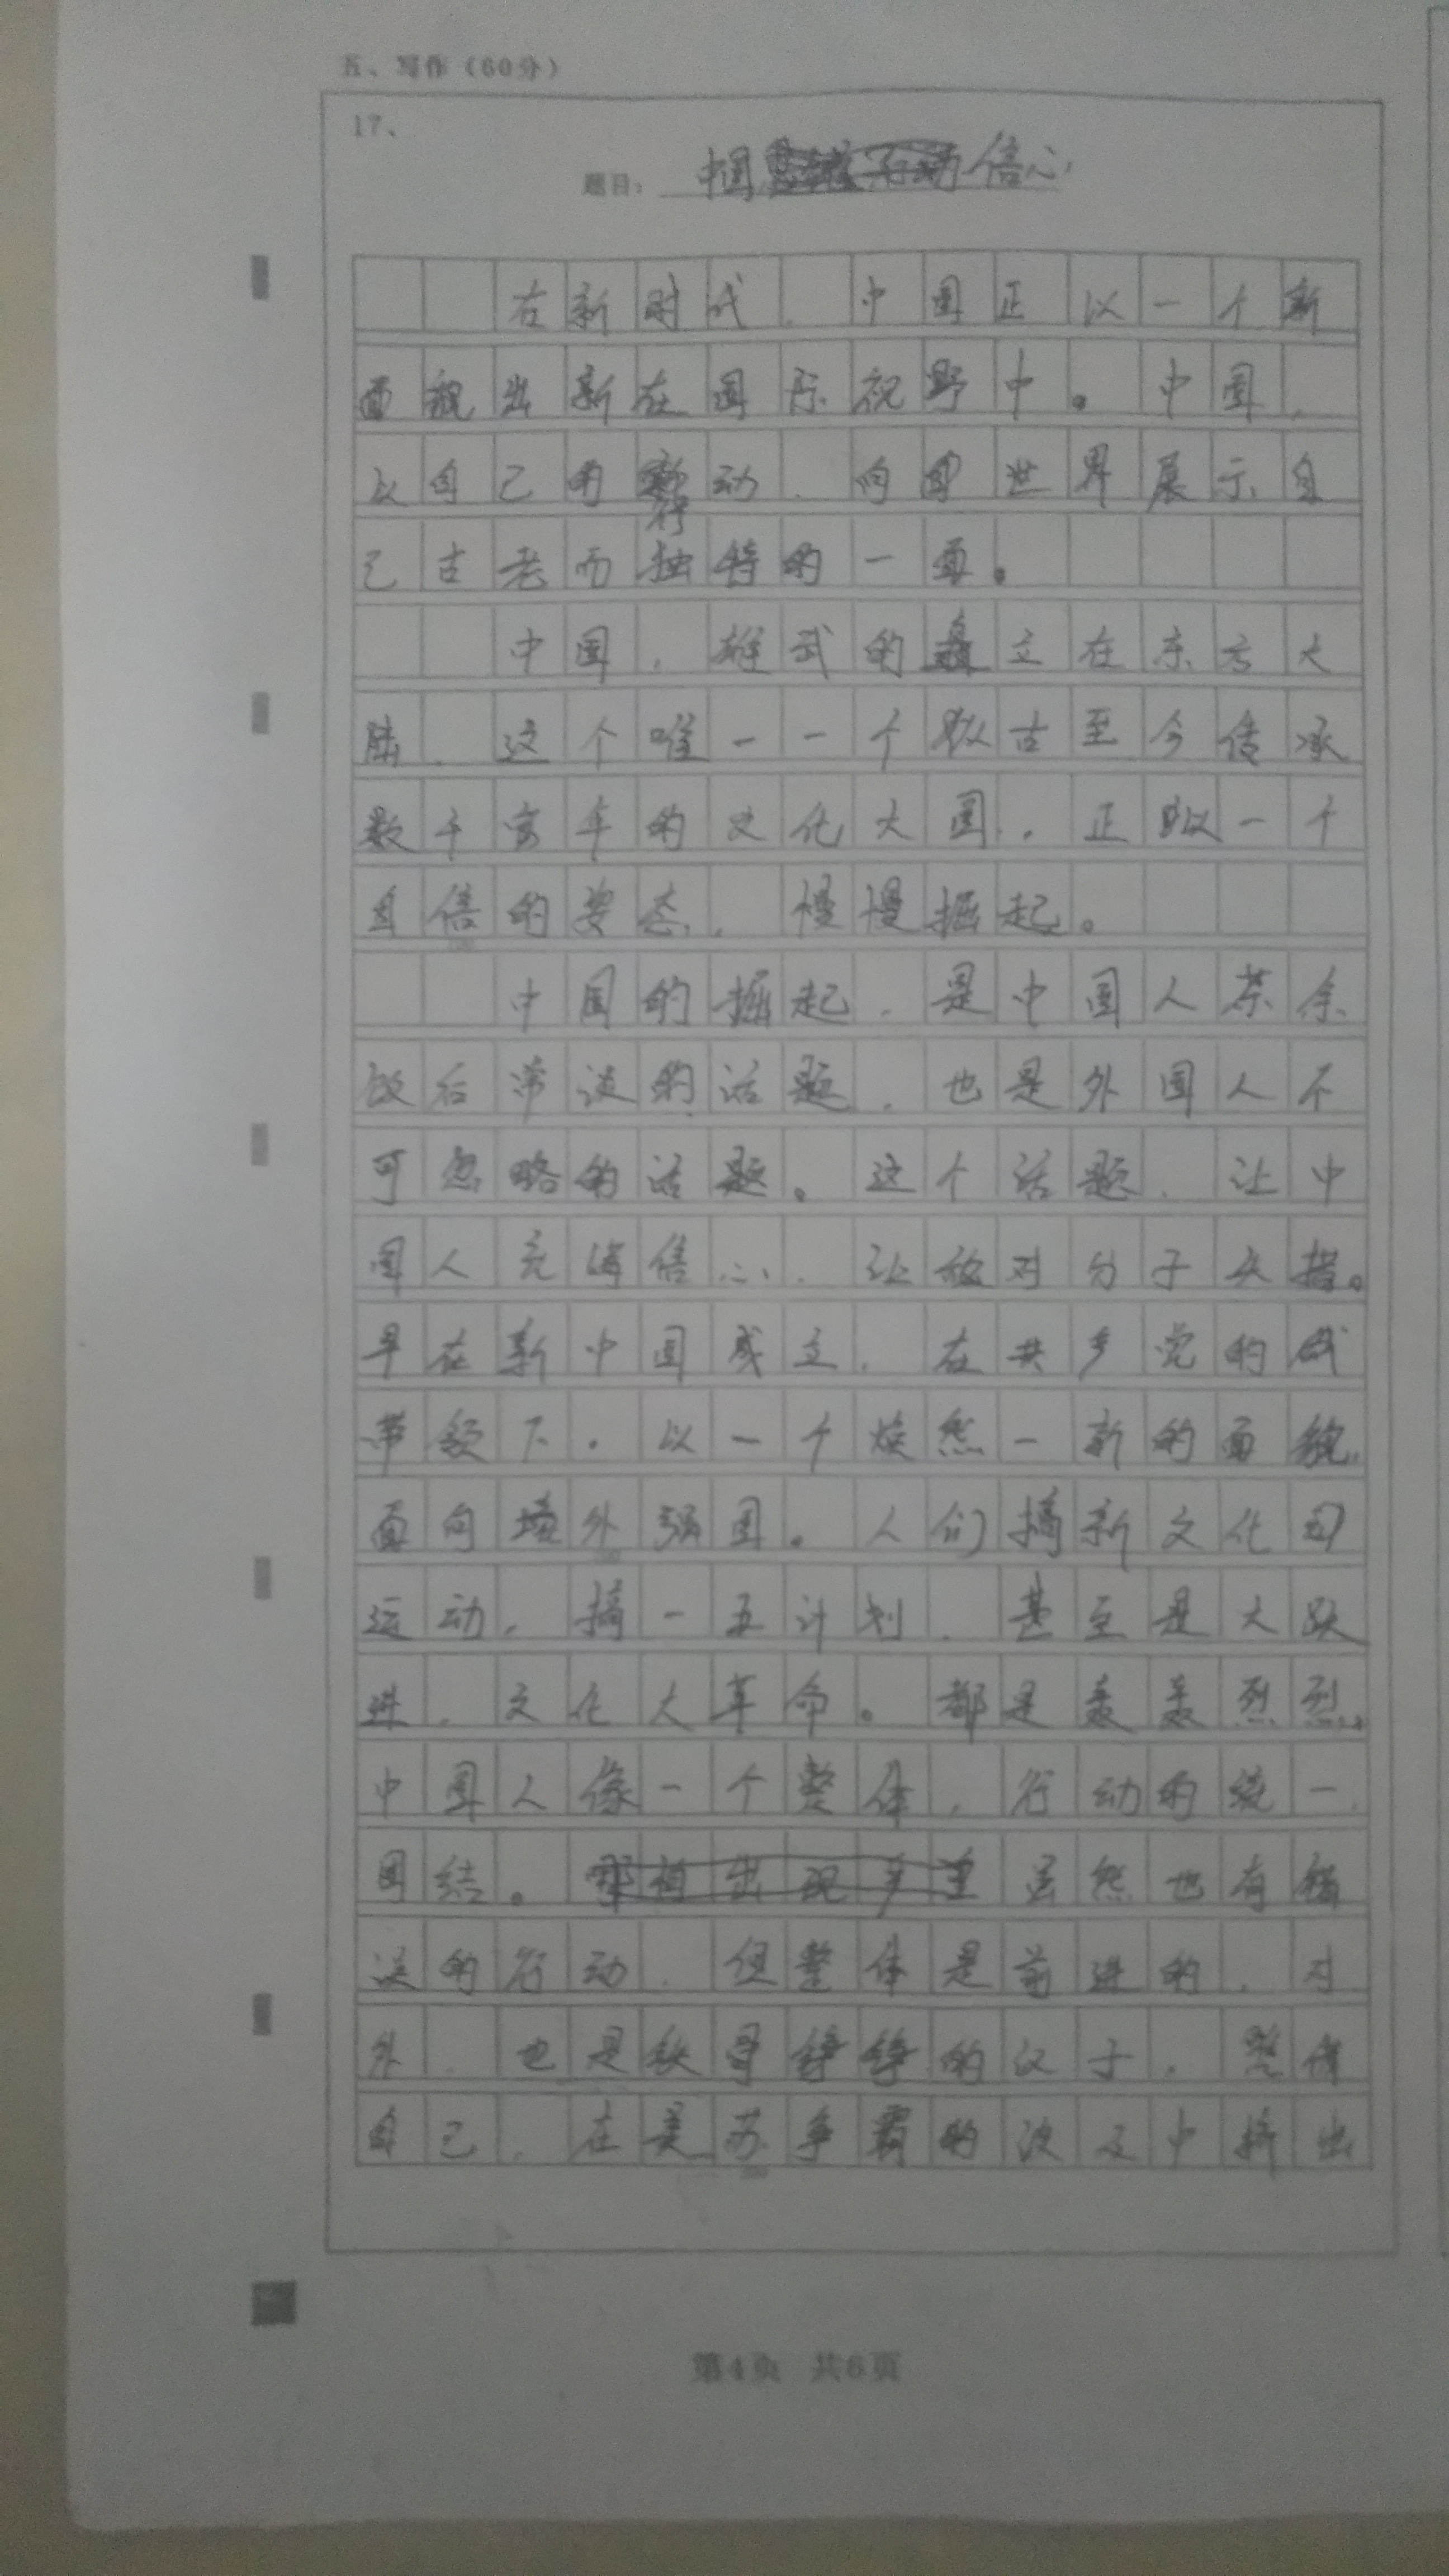 五、写作（60分）
17、
题目：中国信心
在新时代，中国正以一个新
面貌出新在国际视野中。中国，
以自己的行动，向世界展示自
己古老而独特的一面。
中国，雄武的矗立在东方大
陆，这个唯一一个从古至今传承
数千年的文化大国，正以一个
自信的姿态，慢慢掘起。
中国的掘起，是中国人茶余
饭后常谈的话题，也是外国人不
可忽略的话题。这个话题，让中
国人充满信心，让敌对分子头措。
早在新中国成立，在共产党的
带领下，以一个焕然一新的面貌，
面向境外强国。人们搞新文化
运动，搞一五计划，甚至是大跃
进，文化大革命。都是轰轰烈烈。
中国人像一个整体，行动的统一
团结。虽然也有错
误的行动，但整体是前进的，对
外，也是铁骨铮铮的汉子，整
自己，在美苏争霸的中挤出
第4页 共6页